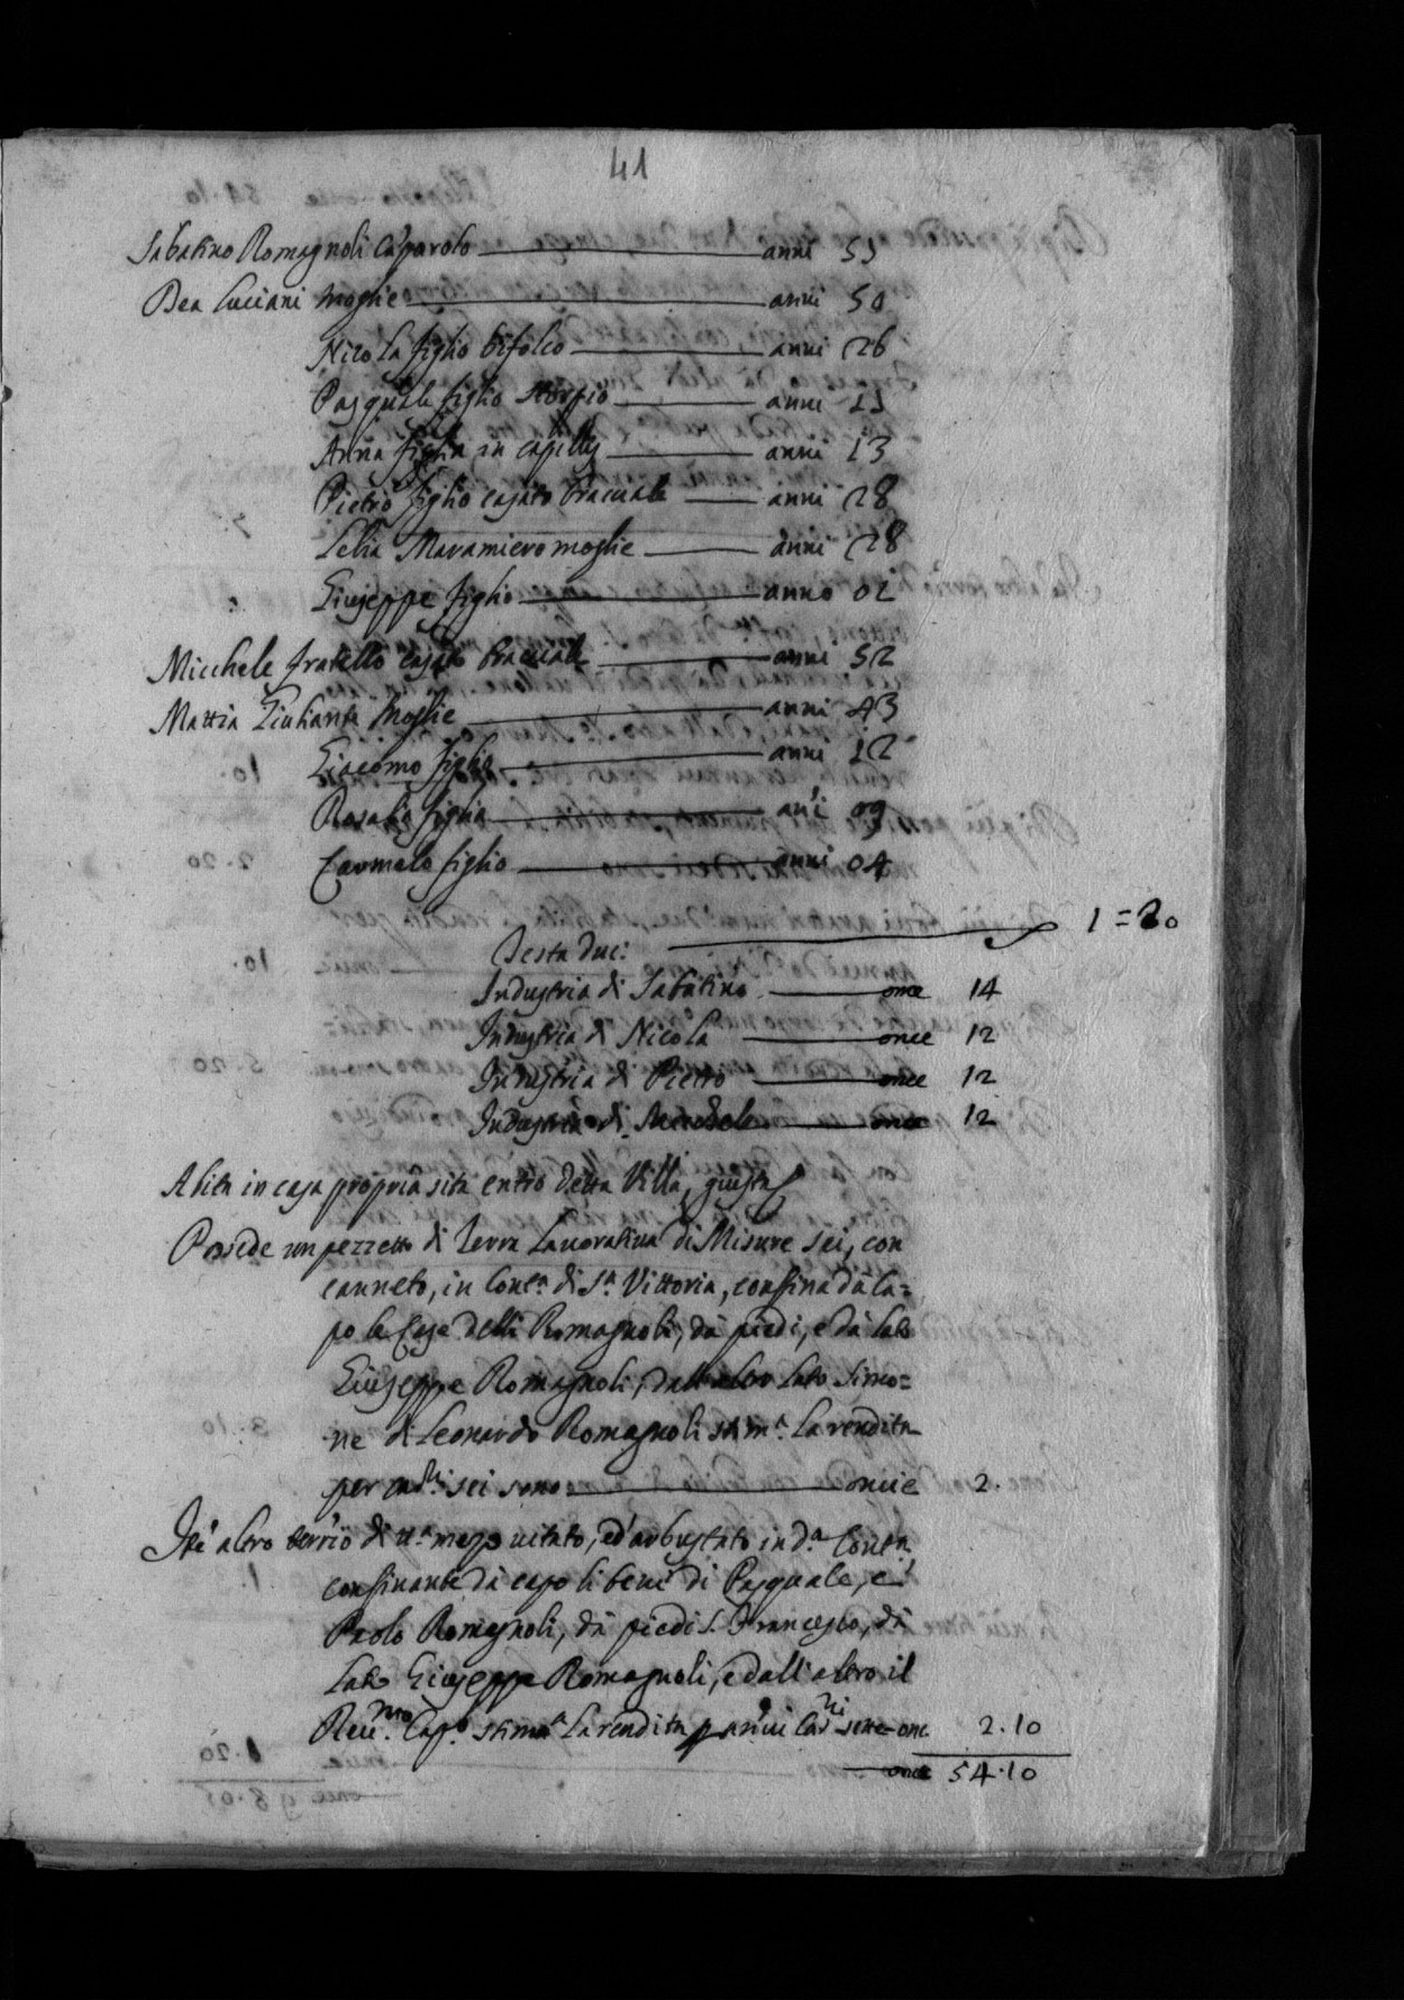 41
Sabatino Romagnoli Caparolo anni 55
Bea Luciani moglie anni 50
Nicola figlio bifolco anni 26
Pasquale figlio storpio anni 15
Anna figlia in capillis anni 13
Pietro figlio casato bracciale anni 28
Lelia Maramiero moglie anni 28
Giuseppe figlio anno 02
Micchele fratello casato bracciale anni 52
Mattia Giuliante moglie anni 43
Giacomo figlio anni 12
Rosalia figlia an'i 09
Carmelo figlio anni 04
Testa due: 1=20
Industria di Sabatino once 14
Industria di Nicola once 12
Industria di Pietro once 12
Industria di Michele once 12
Abita in casa propria sita entro detta Villa, giusta
Possede un pezzetto di Terra Lavorativa di Misure sei, con
canneto, in Cont.a di S.a Vittoria, confina dà ca=
po le Case delli Romagnoli, dà piedi, e dà lato
Giuseppe Romagnoli, dall'altro lato Simo=
ne di Leonardo Romagnoli stim.a la rendita
per sei sono oncie 2.
Ite' altro terr'io di mezo vitato, ed arbustato in d.a Cont.a
confinante dà capo li beni di Pasquale, e
Paolo Romagnoli, dà piedi S. Francesco, dà
lato Giuseppe Romagnoli, e dall'altro il
Reu.mo Cap.o stima la rendita p annui Car.ni sette onc 2.10
once 54.10